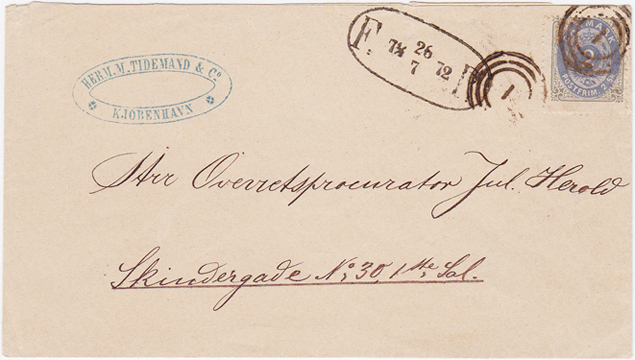 HERM. M. TIDEMAND & Co
KJOBENHAVN
F. 7¼ 26/7 72
1
MARK
2
POSTFRIM. 2 SK
1
Hrr Overretsprocurator Jul. Herold
Skindergade No 30, 1ste Sal.